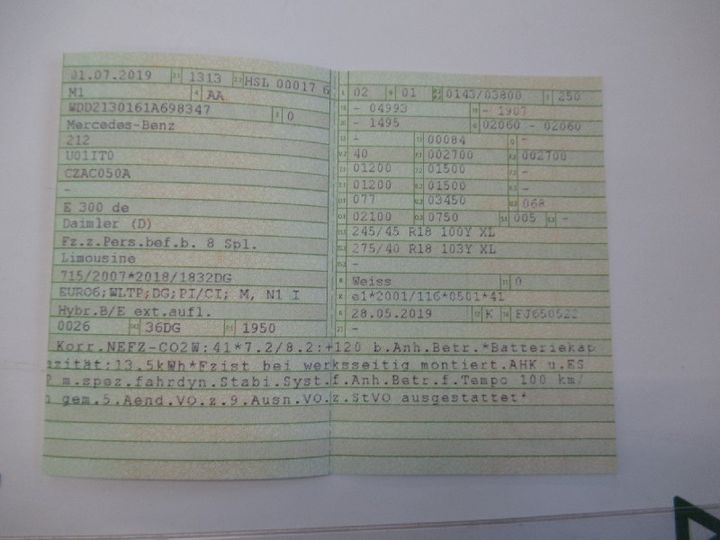 01.07.2019 1313 HSL 00017 6
M1 AA
WDD2130161A698347 0
Mercedes-Benz
212
U01IT0
CZAC050A
-
E 300 de
Daimler (D)
Fz.z.Pers.bef.b. 8 Spl.
Limousine
715/2007*2018/1832DG
EURO6;WLTP;DG;PI/CI; M, N1 I
Hybr.B/E ext.aufl.
0026 36DG 1950
02 01 0143/03800 250
- 04993 - 1907
- 1495 02060 - 02060
- 00084 -
40 002700 002700
01200 01500 -
01200 01500 -
077 03450 068
02100 0750 005 -
245/45 R18 100Y XL
275/40 R18 103Y XL
-
Weiss 0
e1*2001/116*0501*41
28.05.2019 K EJ650522
-
Korr.NEFZ-CO2W:41*7.2/8.2:+120 b.Anh.Betr.*Batteriekap
azität:13.5kWh*Fzist bei werksseitig montiert.AHK u.ES
P m.spez.fahrdyn.Stabi.Syst.f.Anh.Betr.f.Tempo 100 km/
h gem.5.Aend.VO.z.9.Ausn.VO.z.StVO ausgestattet*